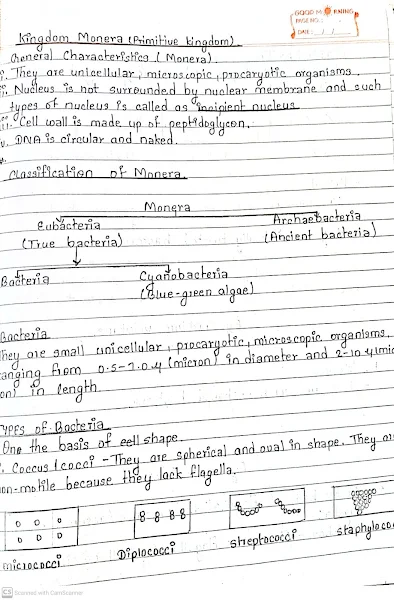 GOOD MORNING
PAGE NO.:
DATE: / /
Kingdom Monera (Primitive kingdom)
General Characteristics (Monera)
i. They are unicellular, microscopic, procaryotic organisms.
ii. Nucleus is not surrounded by nuclear membrane and such
types of nucleus is called as incipient nucleus
iii. Cell wall is made up of peptidoglycon.
iv. DNA is circular and naked.
Classification of Monera.
Monera
Eubacteria Archaebacteria
(True bacteria) (Ancient bacteria)
Bacteria Cyanobacteria
(Blue-green algae)
Bacteria
They are small unicellular, procaryotic, microscopic organisms,
ranging from 0.5-1.0 μ (micron) in diameter and 2-10 μ (mic
on) in length.
Types of Bacteria
One the basis of cell shape.
. Coccus (cocci - They are spherical and oval in shape. They are
non-motile because they lack flagella.
micrococci Diplococci streptococci staphyloco
CS Scanned with CamScanner